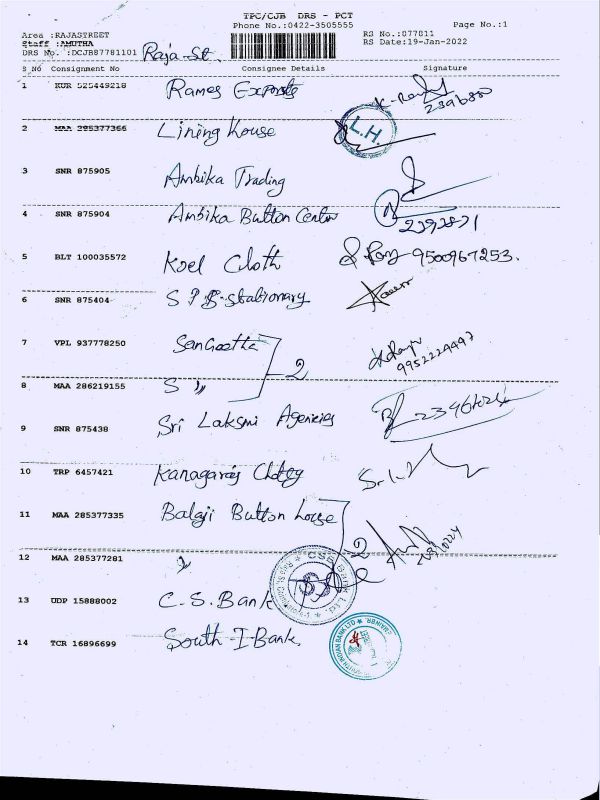 TPC/CJB DRS - PCT
Phone No.:0422-3505555 Page No.:1
Area :RAJASTREET RS No.:077811
Staff :AMUTHA RS Date:19-Jan-2022
DRS No. :DCJB87781101 Raja-St.
S NO Consignment No Consignee Details Signature
1 KUR 525449218 Rames Exports K-Ramesh 2396880
2 MAA 285377366 Lining House L.H.
3 SNR 875905 Ambika Trading
4 SNR 875904 Ambika Button Center 2392821
5 BLT 100035572 Koel Cloth 9500967253.
6 SNR 875404 S P B-stationary
7 VPL 937778250 Sangeetha 2 9952224497
8 MAA 286219155 S "
9 SNR 875438 Sri Laksmi Agencies
10 TRP 6457421 Kanagaraj Chettey
11 MAA 285377335 Balaji Button house 2
12 MAA 285377281 "
13 UDP 15888002 C.S.Bank CSB Bank Ltd.
14 TCR 16896699 South-I-Bank SOUTH INDIAN BANK LTD